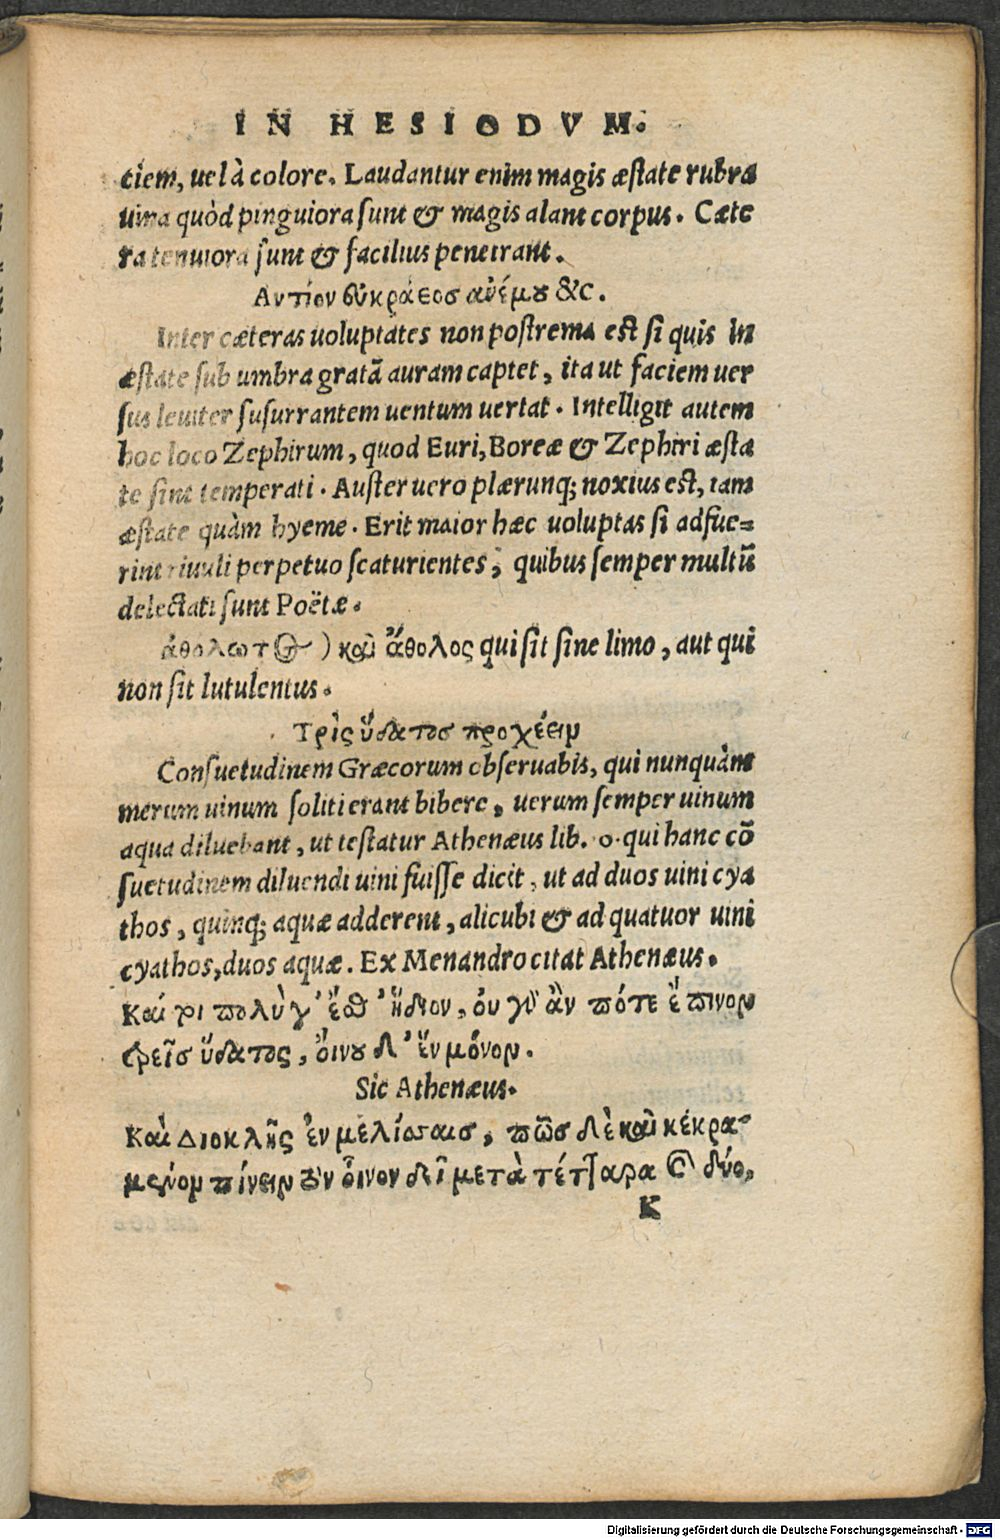 IN HESIODVM.
ciem, uel à colore. Laudantur enim magis æstate rubra
uina quòd pinguiora sunt & magis alant corpus. Cæte
ra tenuiora sunt & facilius penetrant.
Αντίον ἐυκράεοσ ἀνέμου &c.
Inter cæteras uoluptates non postrema est si quis in
æstate sub umbra gratā auram captet, ita ut faciem uer
sus leuiter susurrantem uentum uertat. Intelligit autem
hoc loco Zephirum, quod Euri, Boreæ & Zephiri æsta
te sint temperati. Auster uero plærunq; noxius est, tam
æstate quàm hyeme. Erit maior hæc uoluptas si adfue=
rint riuuli perpetuo scaturientes, quibus semper multū
delectati sunt Poëtæ.
ἀθολωτος) καὶ ἄθολος qui sit sine limo, aut qui
non sit lutulentus.
Τρὶς ὕδατοσ προχέειν
Consuetudinem Græcorum obseruabis, qui nunquàm
merum uinum soliti erant bibere, uerum semper uinum
aqua diluebant, ut testatur Athenæus lib. 10. qui hanc cō
suetudinem diluendi uini fuisse dicit, ut ad duos uini cya
thos, quinq; aquæ adderent, alicubi & ad quatuor uini
cyathos, duos aquæ. Ex Menandro citat Athenæus.
Καί τι πολὺ γ' ἔσθ' ἥδιον, ου γὸ ἂν πότε ἔπινον
τρεῖσ ὕδατος, ὄινου δ' ἕν μόνον.
Sic Athenæus.
Καὶ Διοκλῆς ἐν μελίσσαισ, πῶσ δὲ καὶ κέκρα-
μένον πίνειν τὸν ὄινον δεῖ μετὰ τέτταρα καὶ δύο,
K
Digitalisierung gefördert durch die Deutsche Forschungsgemeinschaft - DFG